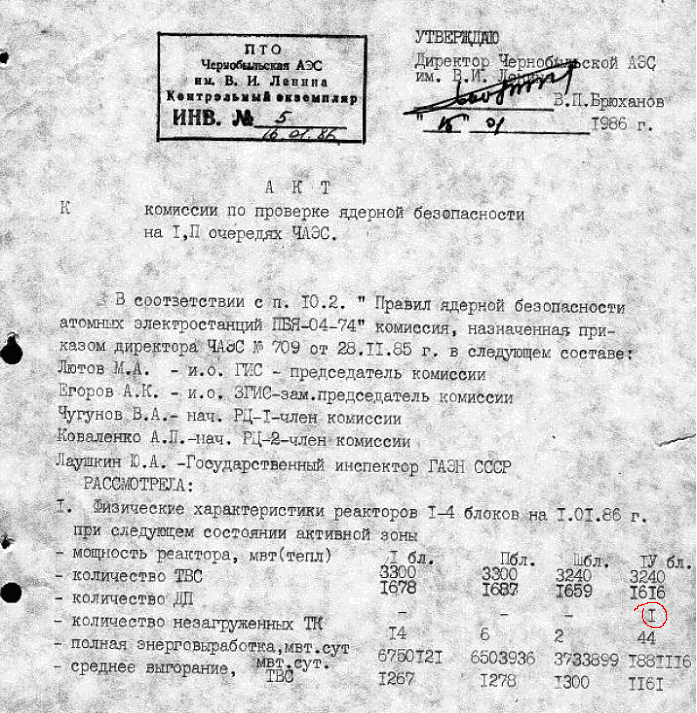 ПТО
Чернобыльская АЭС
им. В. И. Ленина
Контрольный экземпляр
ИНВ. № 5
16.01.86.
УТВЕРЖДАЮ
Директор Чернобыльской АЭС
им. В.И. Ленина
В.П.Брюханов
" 15 " 01 1986 г.
АКТ
К комиссии по проверке ядерной безопасности
на I,П очередях ЧАЭС.
В соответствии с п. I0.2. " Правил ядерной безопасности
атомных электростанций ПБЯ-04-74" комиссия, назначенная при-
казом директора ЧАЭС № 709 от 28.II.85 г. в следующем составе:
Лютов М.А. - и.о. ГИС - председатель комиссии
Егоров А.К. - и.о. ЗГИС-зам.председатель комиссии
Чугунов В.А.- нач. РЦ-I-член комиссии
Коваленко А.П.-нач. РЦ-2-член комиссии
Лаушкин Ю.А. -Государственный инспектор ГАЭН СССР
РАССМОТРЕЛА:
I. Физические характеристики реакторов I-4 блоков на I.0I.86 г.
при следующем состоянии активной зоны
- мощность реактора, мвт(тепл) I бл. Пбл. Шбл. IУ бл.
3300 3300 3240 3240
- количество ТВС I678 I687 I659 I6I6
- количество ДП - - - I
- количество незагруженных ТК I4 6 2 44
- полная энерговыработка,мвт.сут 6750I2I 6503936 3733899 I88III6
- среднее выгорание, мвт.сут. ТВС I267 I278 I300 II6I